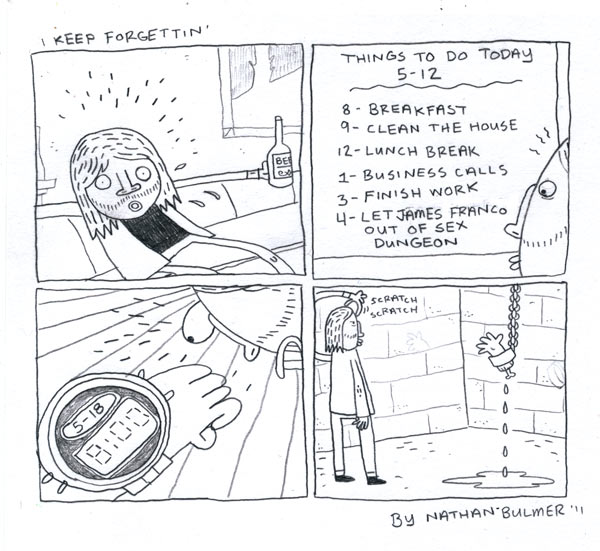 I KEEP FORGETTIN'
BEE
THINGS TO DO TODAY
5-12
8- BREAKFAST
9- CLEAN THE HOUSE
12- LUNCH BREAK
1- BUSINESS CALLS
3- FINISH WORK
4- LET JAMES FRANCO
OUT OF SEX
DUNGEON
5-18
9:00
SCRATCH
SCRATCH
BY NATHAN BULMER '11